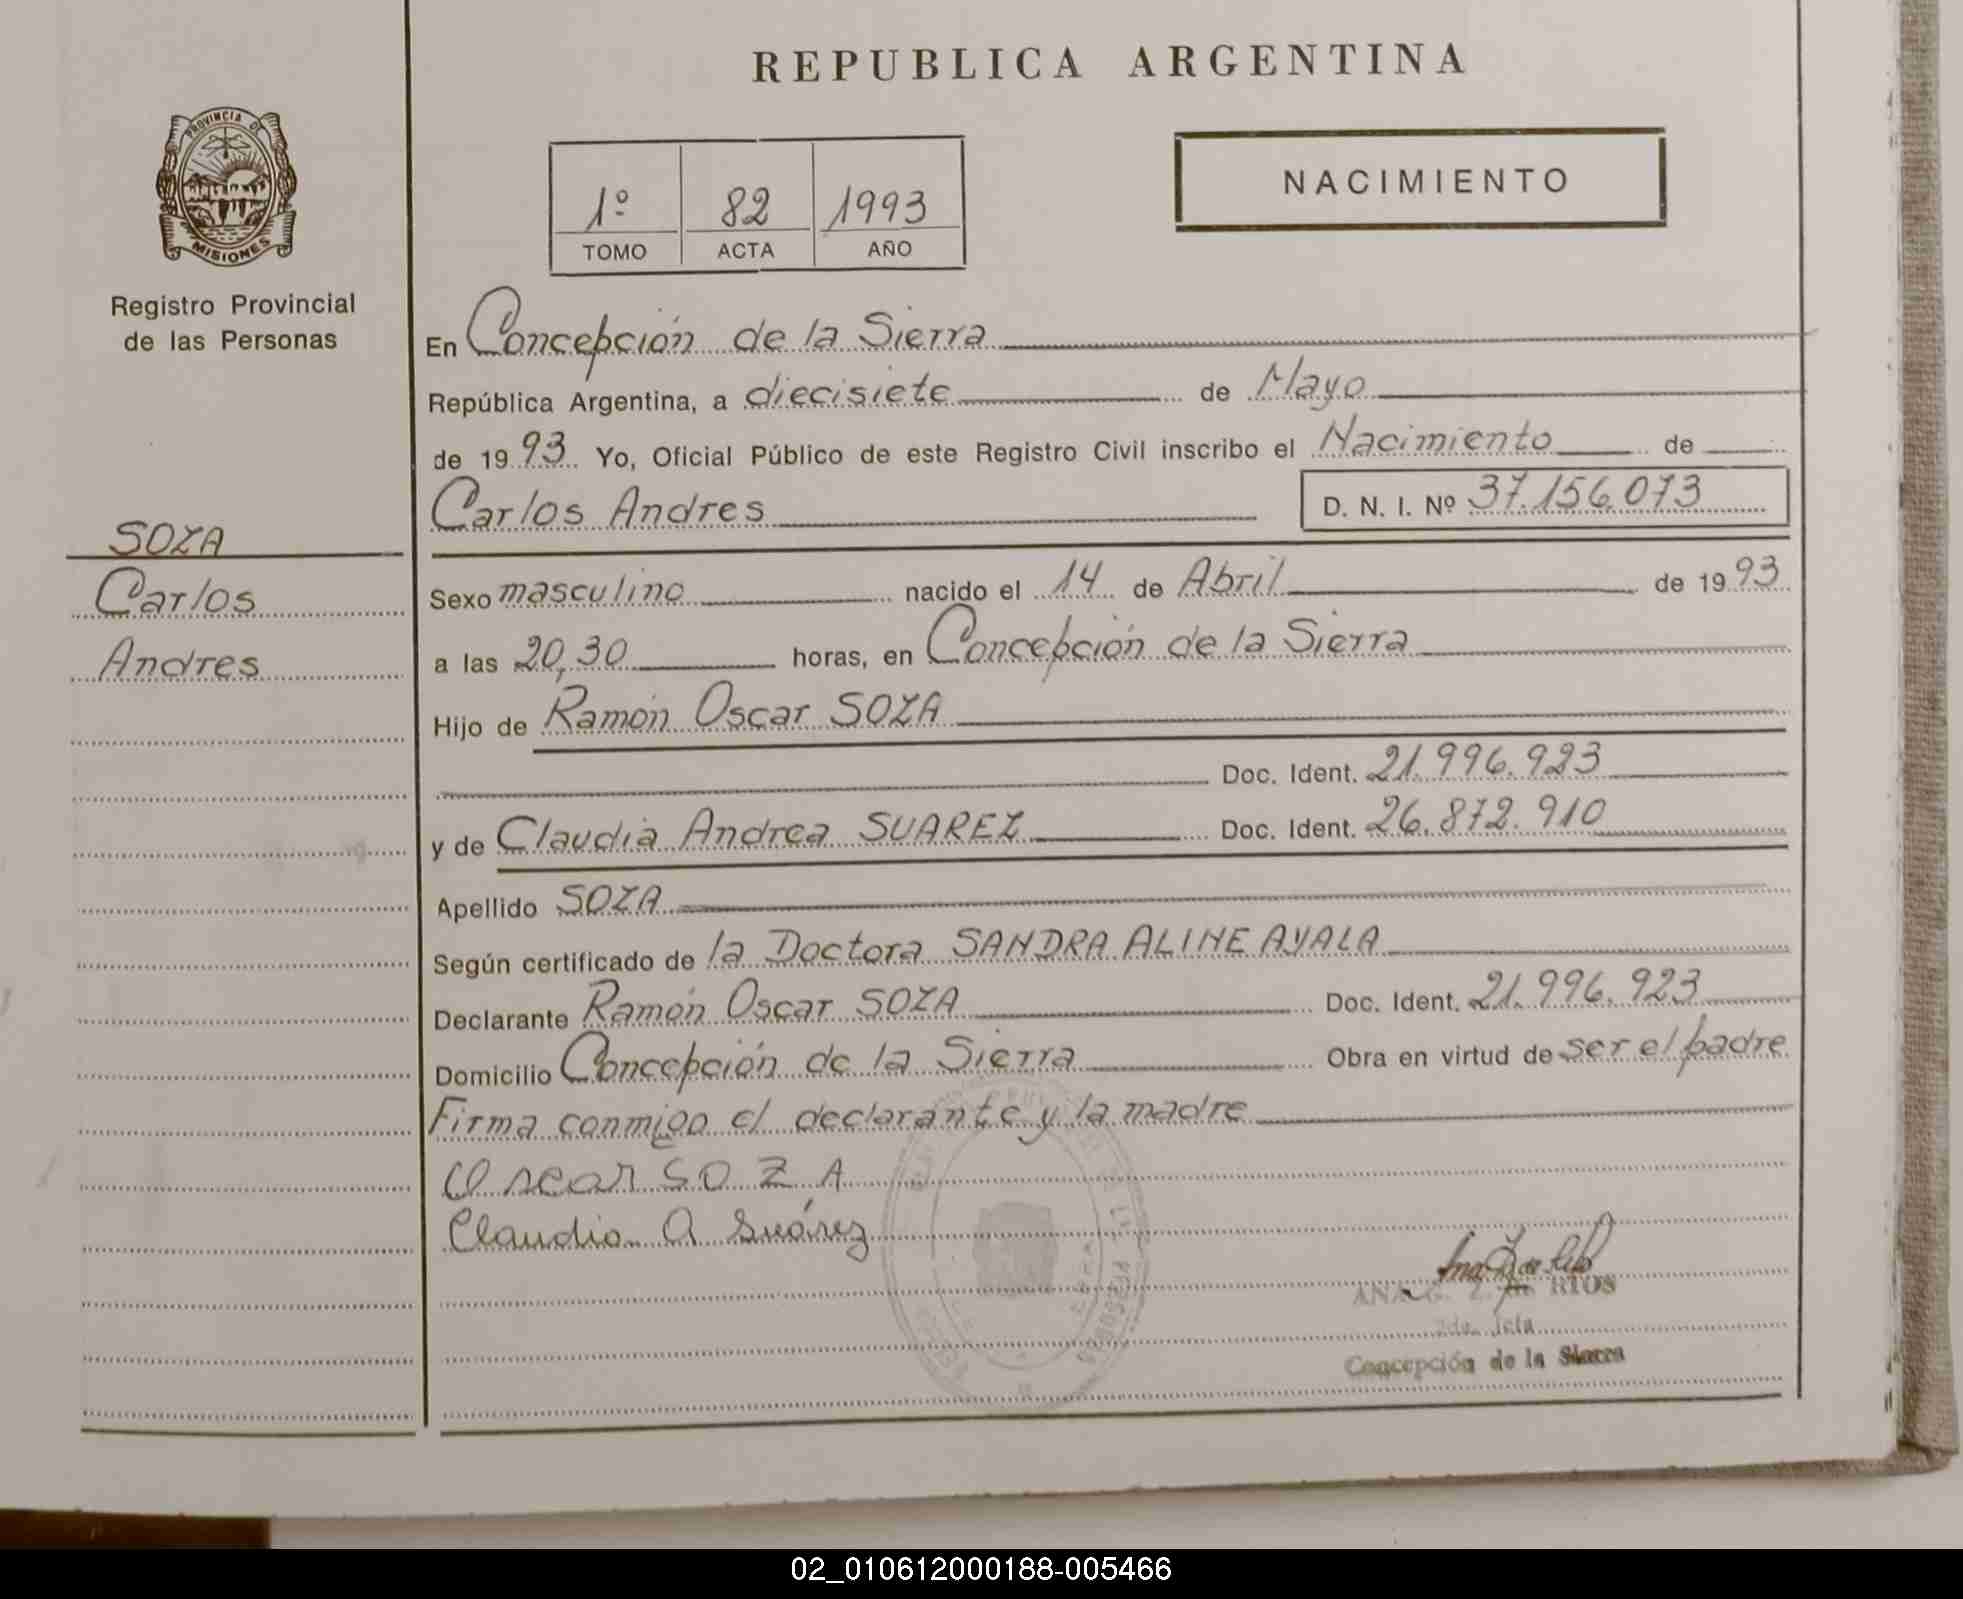 REPUBLICA ARGENTINA
PROVINCIA DE
MISIONES
Registro Provincial
de las Personas
1º 82 1993
TOMO ACTA AÑO
NACIMIENTO
En Concepción de la Sierra
República Argentina, a diecisiete de Mayo
de 1993 Yo, Oficial Público de este Registro Civil inscribo el Nacimiento de
Carlos Andres D. N. I. Nº 37.156.073
SOZA
Carlos
Andres
Sexo masculino nacido el 14 de Abril de 1993
a las 20,30 horas, en Concepción de la Sierra
Hijo de Ramón Oscar SOZA
Doc. Ident. 21.996.923
y de Claudia Andrea SUAREZ Doc. Ident. 26.872.910
Apellido SOZA
Según certificado de la Doctora SANDRA ALINE AYALA
Declarante Ramón Oscar SOZA Doc. Ident. 21.996.923
Domicilio Concepción de la Sierra Obra en virtud de ser el padre
Firma conmigo el declarante y la madre
Oscar SOZA
Claudia A Suárez
ANA RIOS
Concepción de la Sierra
02_010612000188-005466